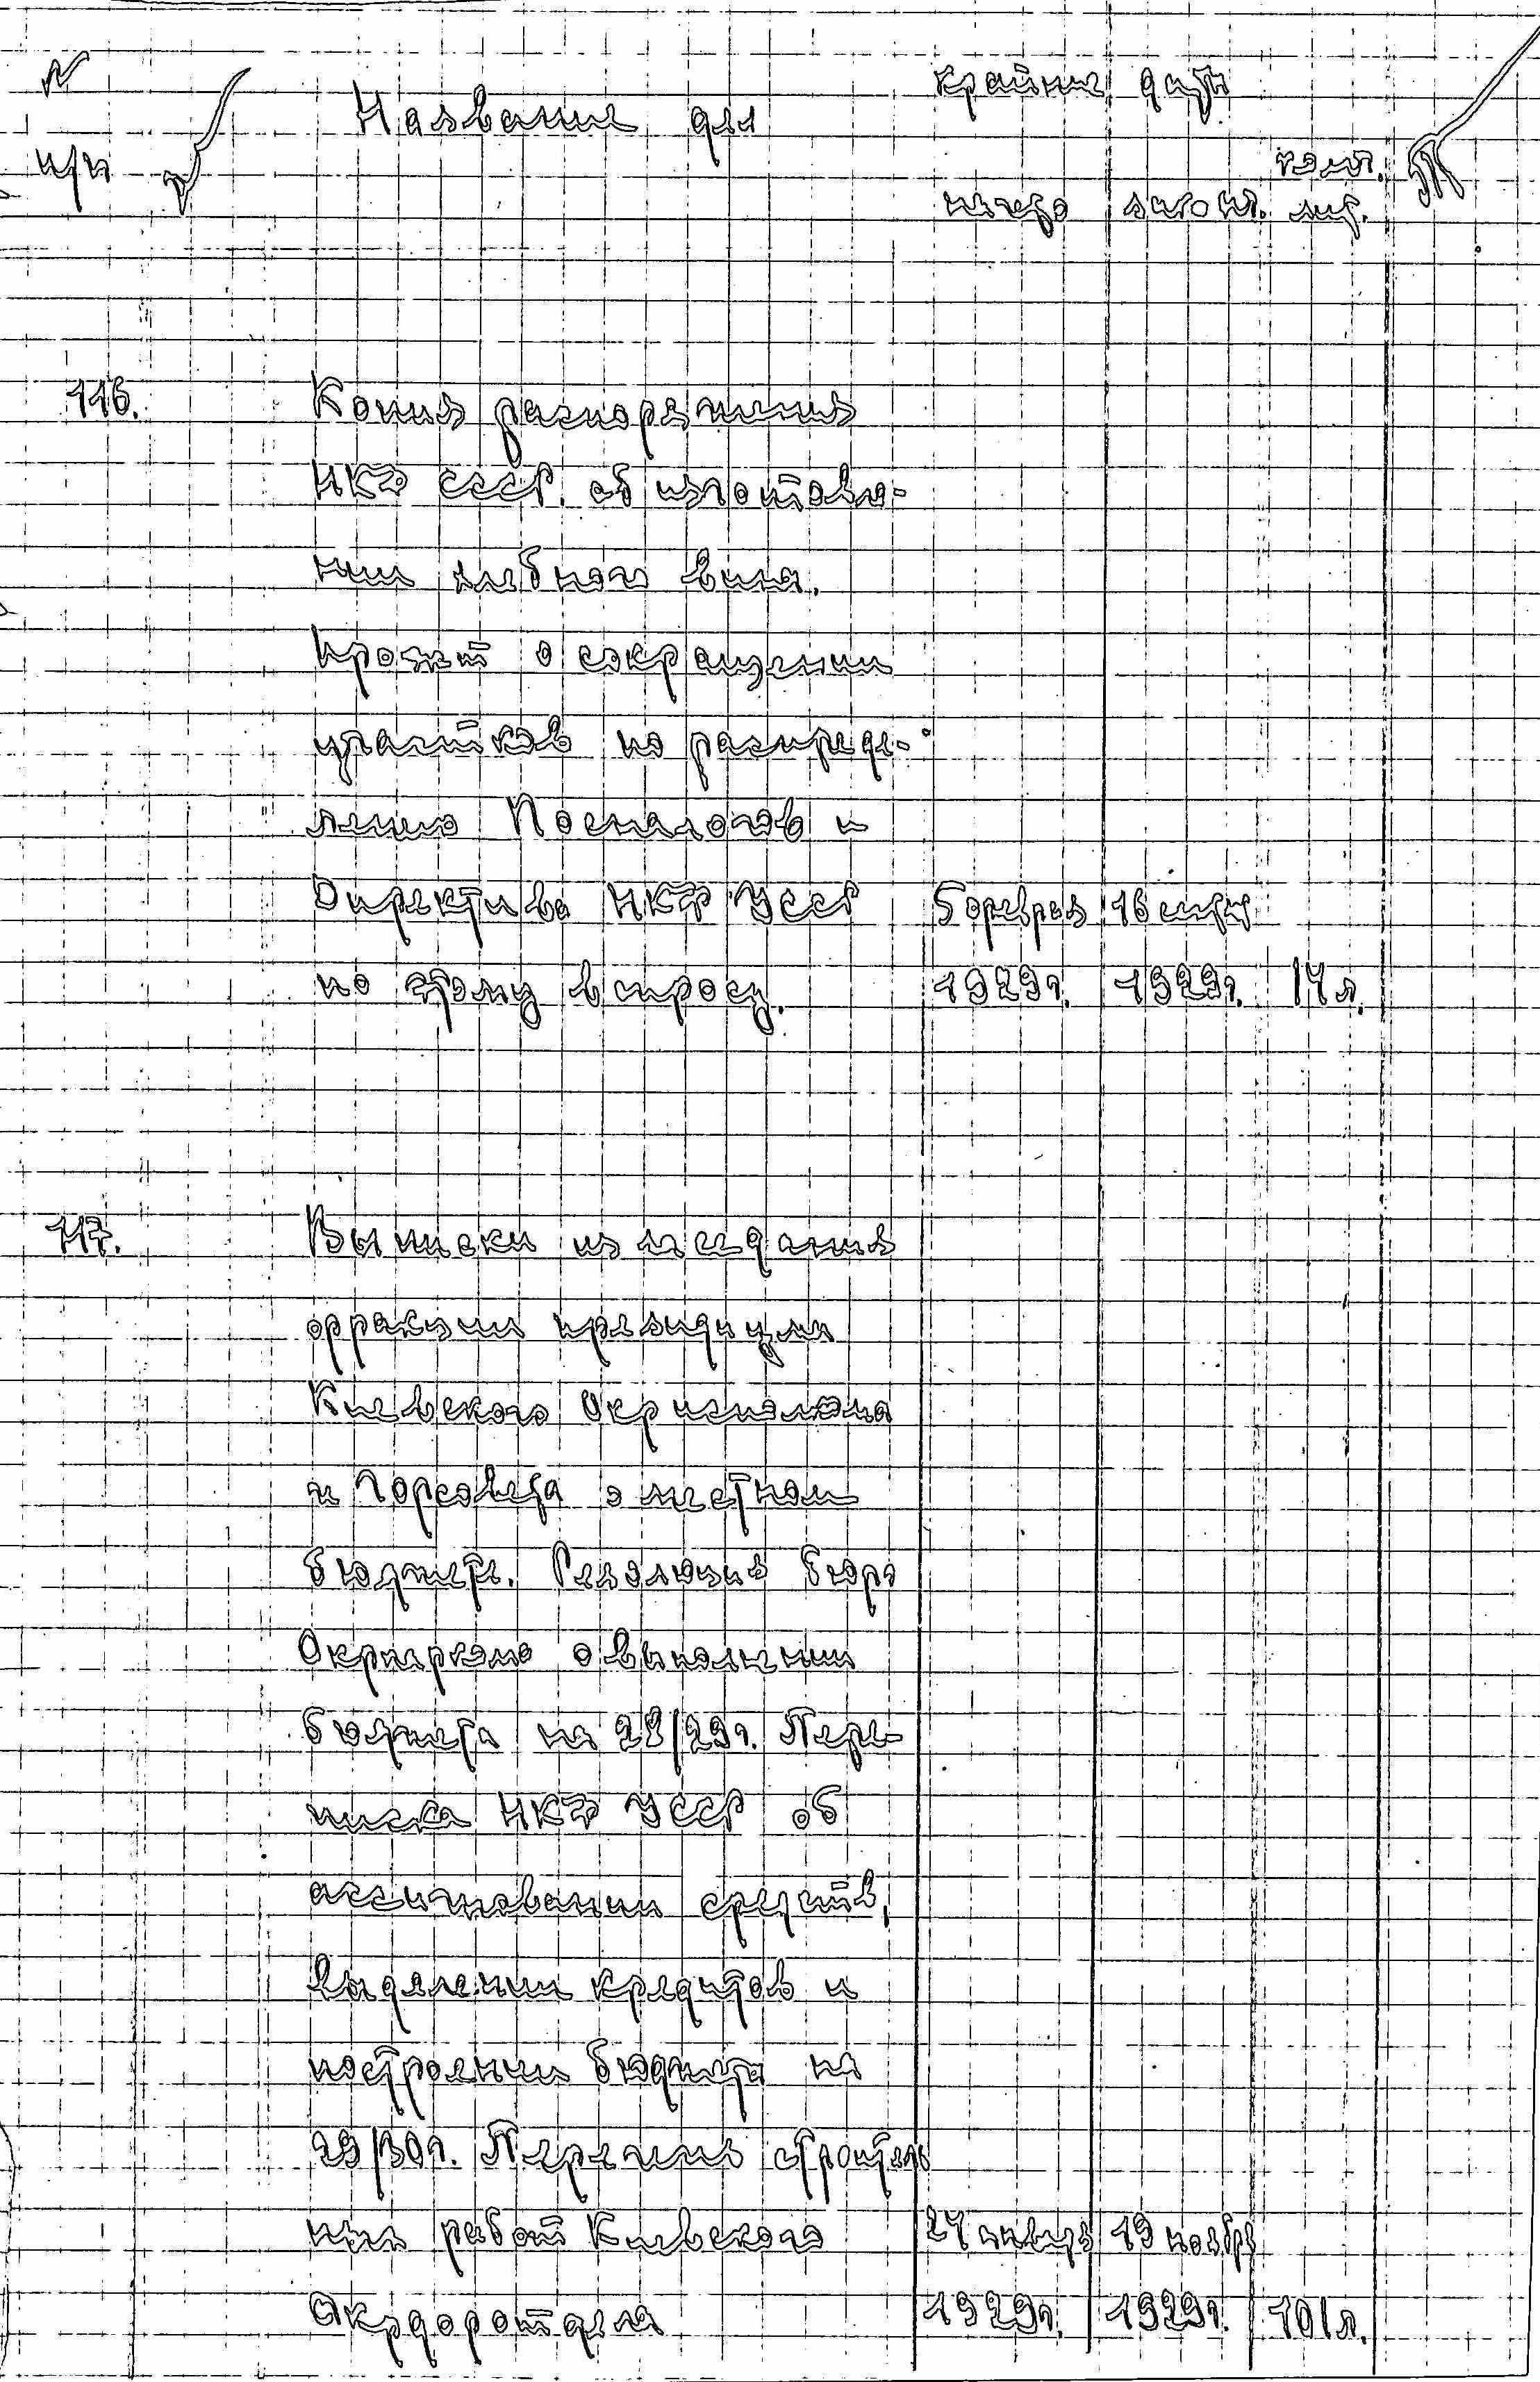 №
п/п
Название дел
крайние даты
начало
оконч.
кол.
л.
116.
Копия распоряжения
НКФ СССР. об изготовле-
нии хлебного вина.
Проект о сокращении
участков по распреде-
лению Посналогов и
Директива НКФ УССР
5 февраля 16 сент
по этому вопросу.
1929г. 1929г. 14 л.
117.
Выписки из заседания
фракции президиума
Киевского Окрисполкома
и Горсовета о местном
бюджете. Резолюция бюро
Окрпаркома о выполнении
бюджета на 28/29г. Пере-
писка НКФ УССР об
ассигновании средств,
выделении кредитов и
построении бюджета на
29/30г. Перечень строитель
ных работ Киевского
24 января 19 ноябр
Окрдоротдела
1929г. 1929г. 101л.